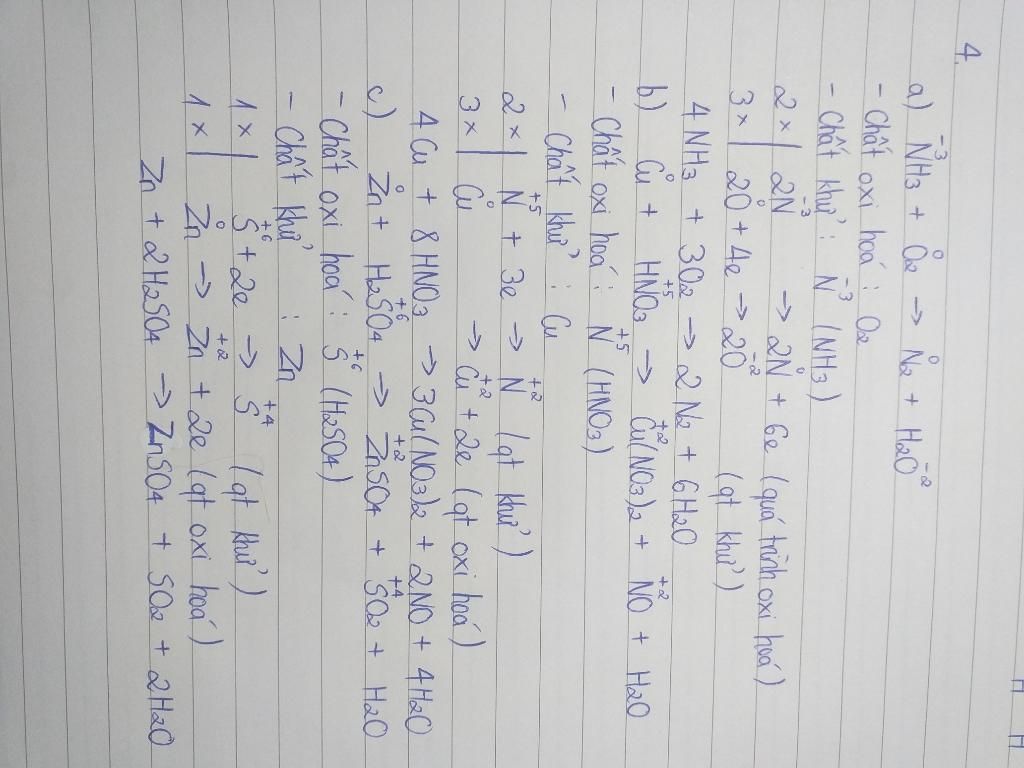 4.
a) NH₃⁻³ + O₂⁰ → N₂⁰ + H₂O⁻²
- Chất oxi hoá : O₂
- Chất khử : N⁻³ (NH₃)
2 × | 2N⁻³ → 2N⁰ + 6e (quá trình oxi hoá)
3 × | 2O⁰ + 4e → 2O⁻² (qt khử)
4 NH₃ + 3O₂ → 2 N₂ + 6 H₂O
b) Cu⁰ + HNO₃⁺⁵ → Cu⁺²(NO₃)₂ + N⁺²O + H₂O
- Chất oxi hoá : N⁺⁵ (HNO₃)
- Chất khử : Cu
2 × | N⁺⁵ + 3e → N⁺² (qt khử)
3 × | Cu⁰ → Cu⁺² + 2e (qt oxi hoá)
4 Cu + 8 HNO₃ → 3Cu(NO₃)₂ + 2NO + 4H₂O
c) Zn⁰ + H₂S⁺⁶O₄ → Zn⁺²SO₄ + S⁺⁴O₂ + H₂O
- Chất oxi hoá : S⁺⁶ (H₂SO₄)
- Chất khử : Zn
1 × | S⁺⁶ + 2e → S⁺⁴ (qt khử)
1 × | Zn⁰ → Zn⁺² + 2e (qt oxi hoá)
Zn + 2H₂SO₄ → ZnSO₄ + SO₂ + 2H₂O